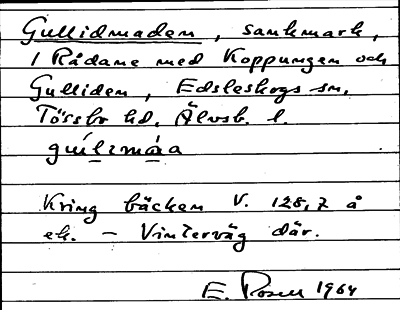 Gullidmaden, sankmark,
i Rådane med Koppungen och
Gulliden, Edsleskogs sn,
Tössbo hd, Älvsb. l.
Kring bäcken V. 128,7 å
ek. – Vinterväg där.
E. Rosell 1964